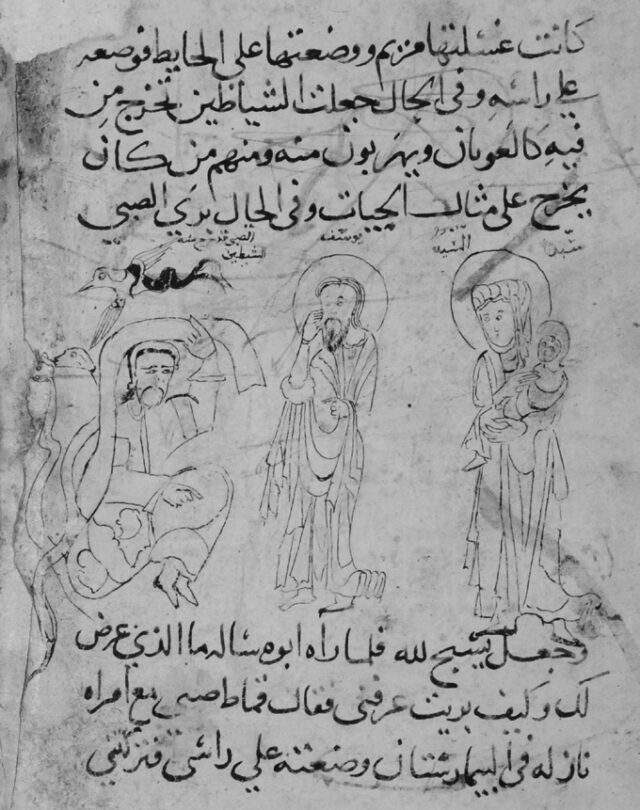 كانت غسلتها مريم ووضعتها على الحايط فوضعه
على راسه وفى الحال جعلت الشياطين تخرج من
فيه كالغربان ويهربون منه ومنهم من كان
يخرج على مثال الحيات وفى الحال بري الصبي
الصبي تخرج منه يوسف السيده سيدنا
الشياطين
وجعل يسبح لله فلما راه ابوه ساله ما الذي عرض
لك وكيف بريت عرفنى فقال قماط صبى مع امراه
نازله فى البيمارستان وضعته على راسى فتركتنى